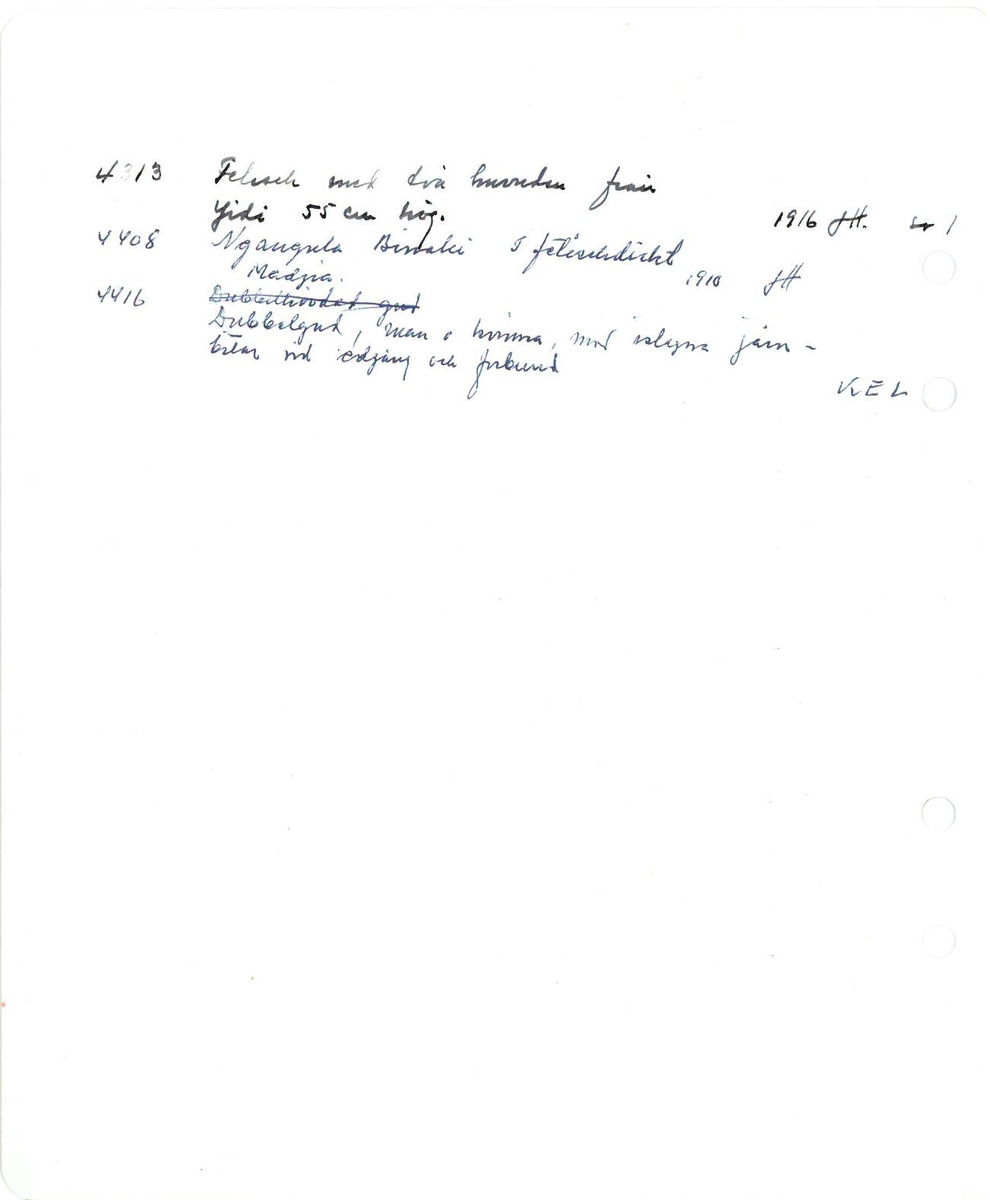 4313 Fetisch med två huvuden från
Yidi 55 cm hög. 1916 JH. 1
4408 Ngangula i fetischdräkt
Madzia. 1910 JH
4416 Dubbelhövdad gud
Dubbelgud, man o kvinna, med islagna järn-
bitar vid edgång och förbund
KEL